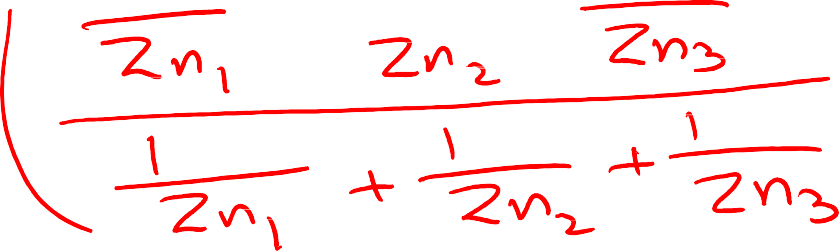 ( Zn₁ Zn₂ Zn₃
1/Zn₁ + 1/Zn₂ + 1/Zn₃